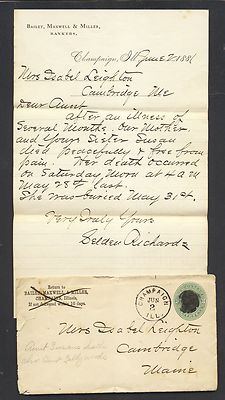 BAILEY, MAXWELL & MILLER,
BANKERS.
Champaign, Ill June 2 1881
Mrs Isabel Leighton
Cambridge Me
Dear Aunt
after an illness of
Several Months. Our Mother
and Your Sister Susan
died peacefully & free from
pain. Her death occurred
on Saturday Morn at 4 a.m
May 28th last.
She was buried May 31st.
Very Truly Yours
Selden Richards
Return to
BAILEY, MAXWELL & MILLER,
CHAMPAIGN, Illinois,
If not delivered within 10 days.
CHAMPAIGN
JUN
2
ILL.
Mrs Isabel Leighton
Cambridge
Maine
Aunt Susans death